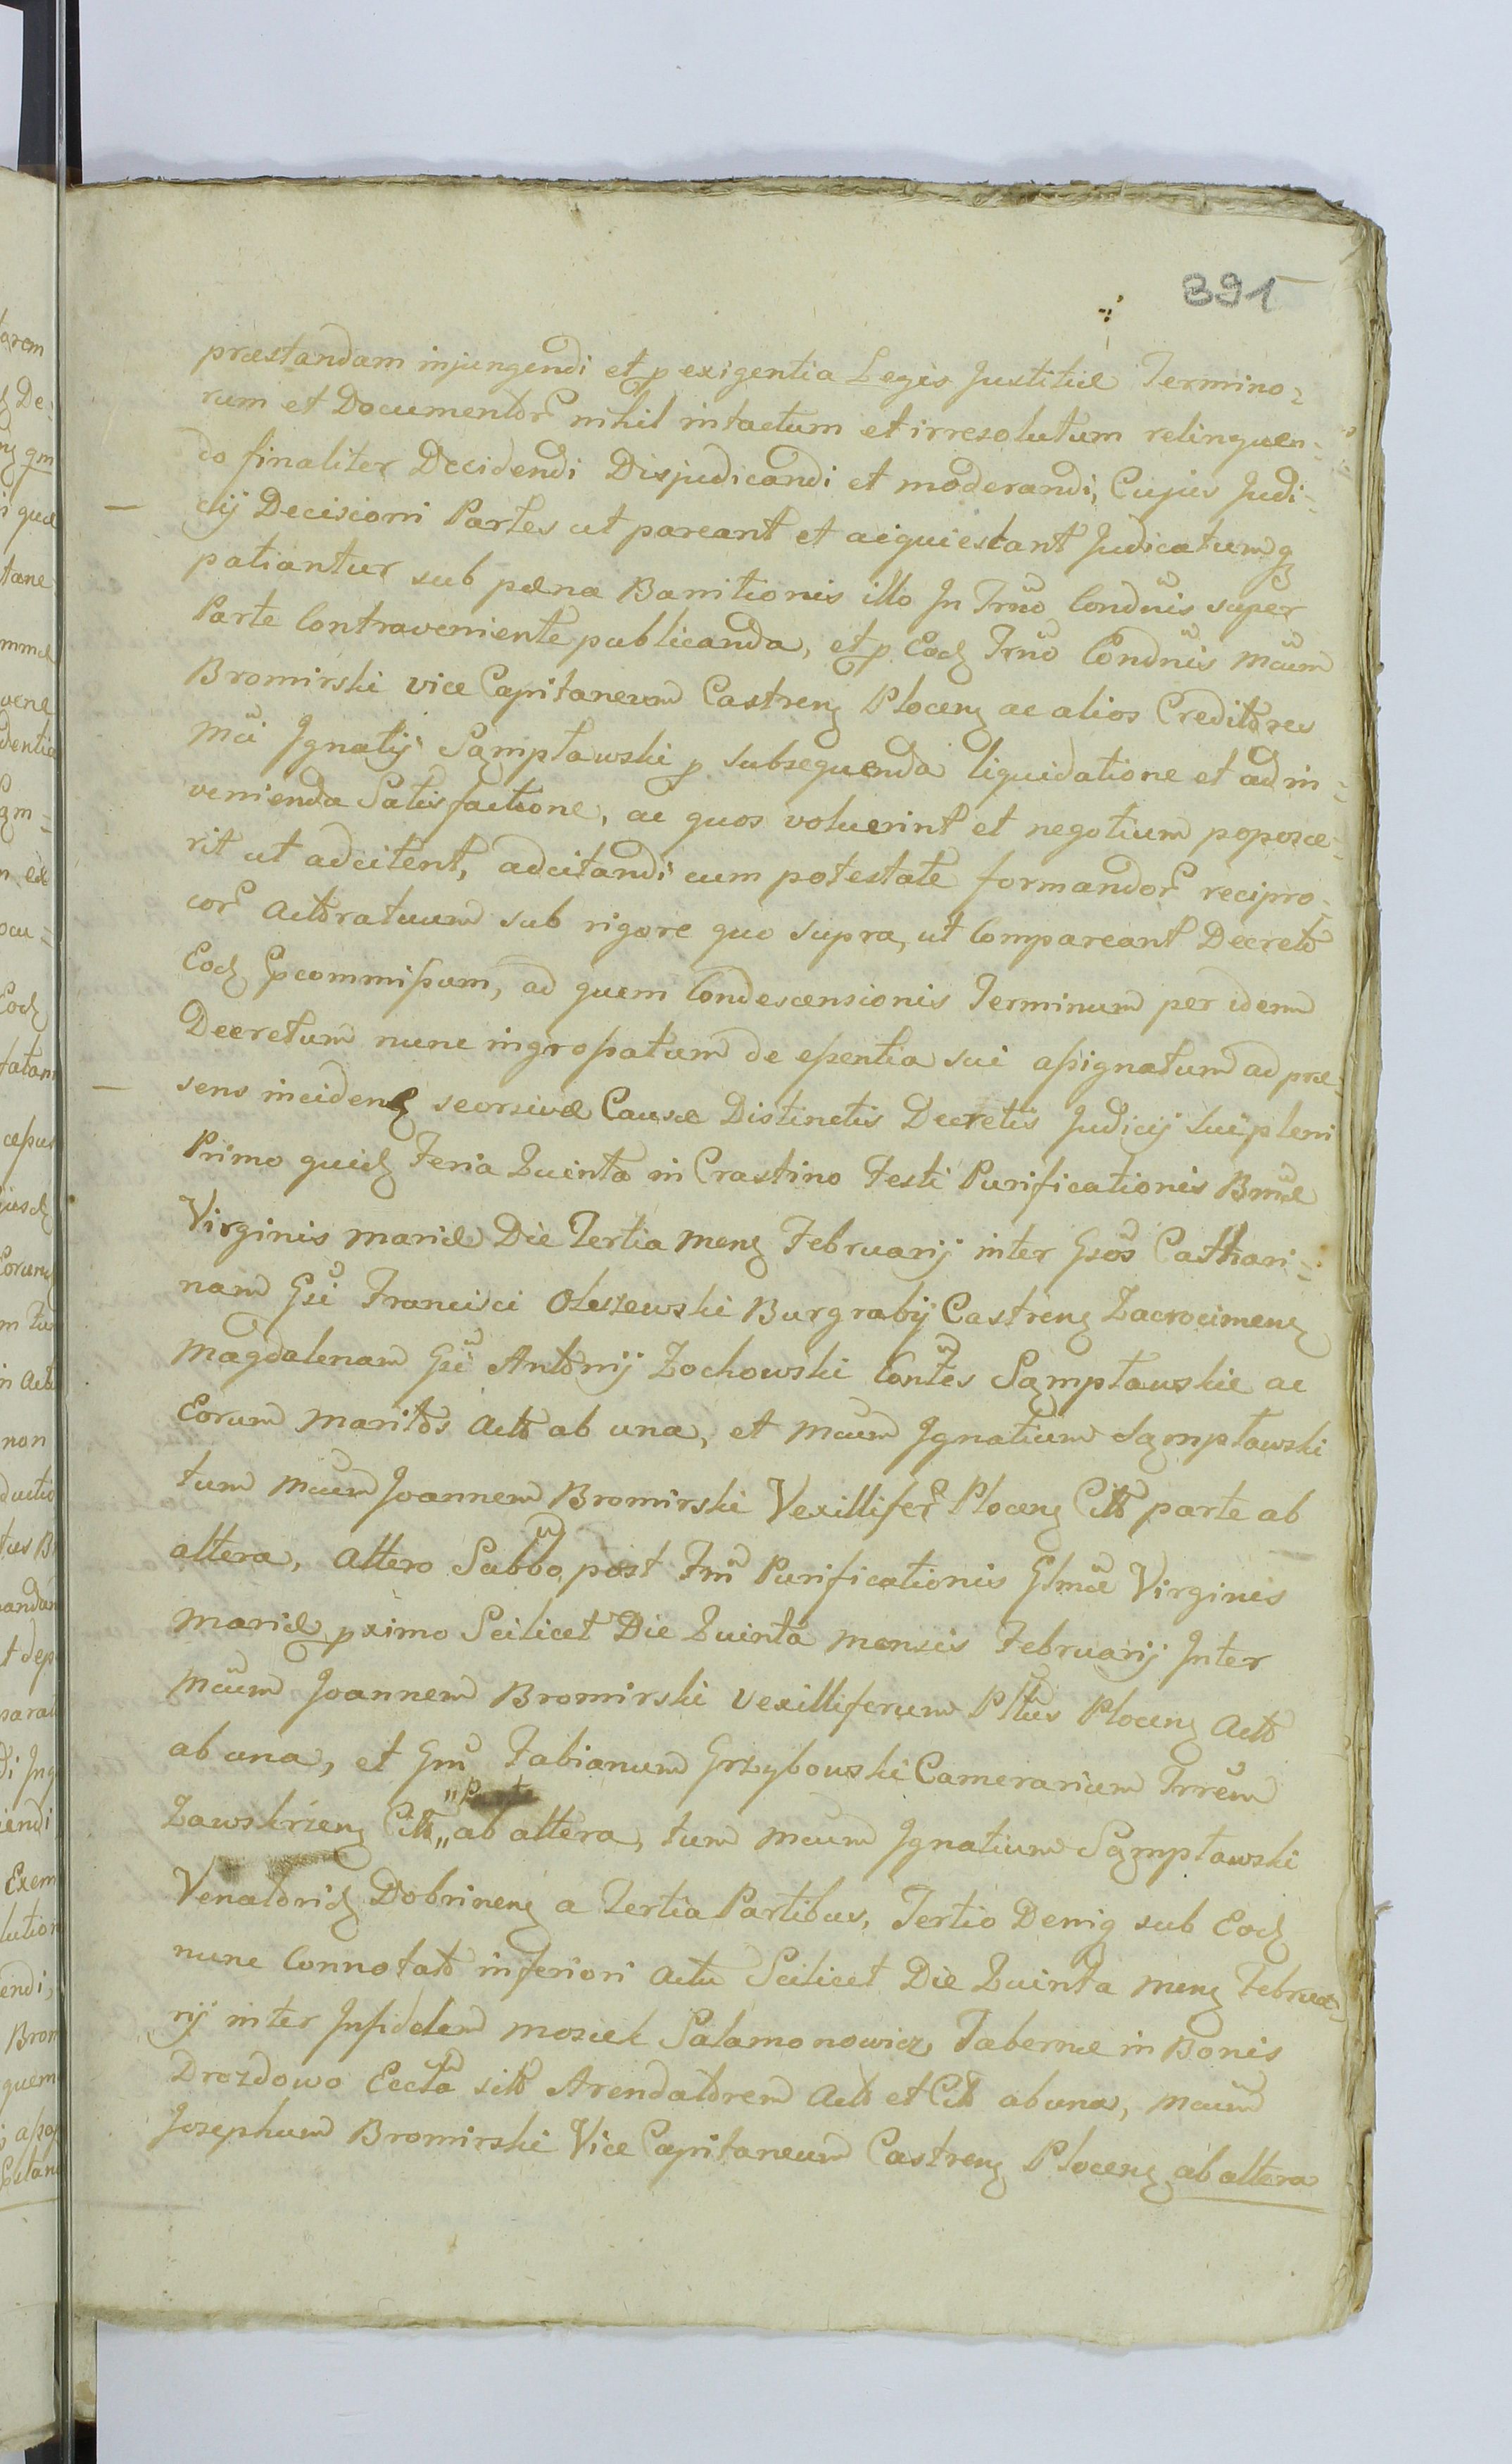 391
præstandam injungendi et p exigentia Legis Justitiæ Termino=
rum et Documentor nihil intactum et irresolutum relinquen=
do finaliter Decidendi Disjudicandi et moderandi, Cujus Judi=
cij Decisioni Partes ut pareant et acquiescant Judicatumq
patiantur sub pæna Banitionis illo In Trno Condnis super
Parte Contraveniente publicanda, et p Eod Trno Condnis Mcum
Bromirski vice Capitaneum Castren Plocen ac alios Creditores
Mci Ignatij Sampławski p subsequenda liquidatione et ad in=
venienda Satisfactione, ac quos voluerint et negotium poposce=
rit ut adcitent, adcitandi cum potestate formandor recipro=
cor Actoratuum sub rigore quo supra, ut Compareant Decreto
Eod commissum, ad quem Condescensionis Terminum per idem
Decretum nunc ingrossatum de essentia sui assignatum ad præ
sens inciden seorsivæ Causæ Distinctis Decretis Judicij sui pleni
Primo quid Feria Quinta in Crastino Festi Purificationis Bmæ
Virginis Mariæ Die Tertia Men Februarij inter Gsos Cathari=
nam Gsi Francisci Olszewski Burgrabij Castren Zacrocimen
Magdalenam Gsi Antonij Żochowski Contes Sampławskie ac
Eorum Maritos Acto ab una, et Mcum Ignatium Sampławski
tum Mcum Joannem Bromirski Vexillifer Plocen Citt parte ab
altera, Altero Sabbo post Fm Purificationis Glmæ Virginis
Mariæ pximo Scilicet Die Quinta Mensis Februarij Inter
Mcum Joannem Bromirski Vexilliferum Pttus Plocen Acto
ab una, et Gm Fabianum Grzybowski Camerarium Trrem
Zawskrzen Citt „ ab altera, tum Mcum Ignatium Sampławski
Venatorid Dobrinen a Tertia Partibus, Tertio Deniq sub Eod
nunc Connotato inferiori Actu Scilicet Die Quinta Men Februa=
rij inter Infidelem Mosiek Salamonowicz Tabernæ in Bonis
Drozdowo Eccta sito Arendatorem Acto et Citt ab una, Mcum
Josephum Bromirski Vice Capitaneum Castren Plocen ab altera